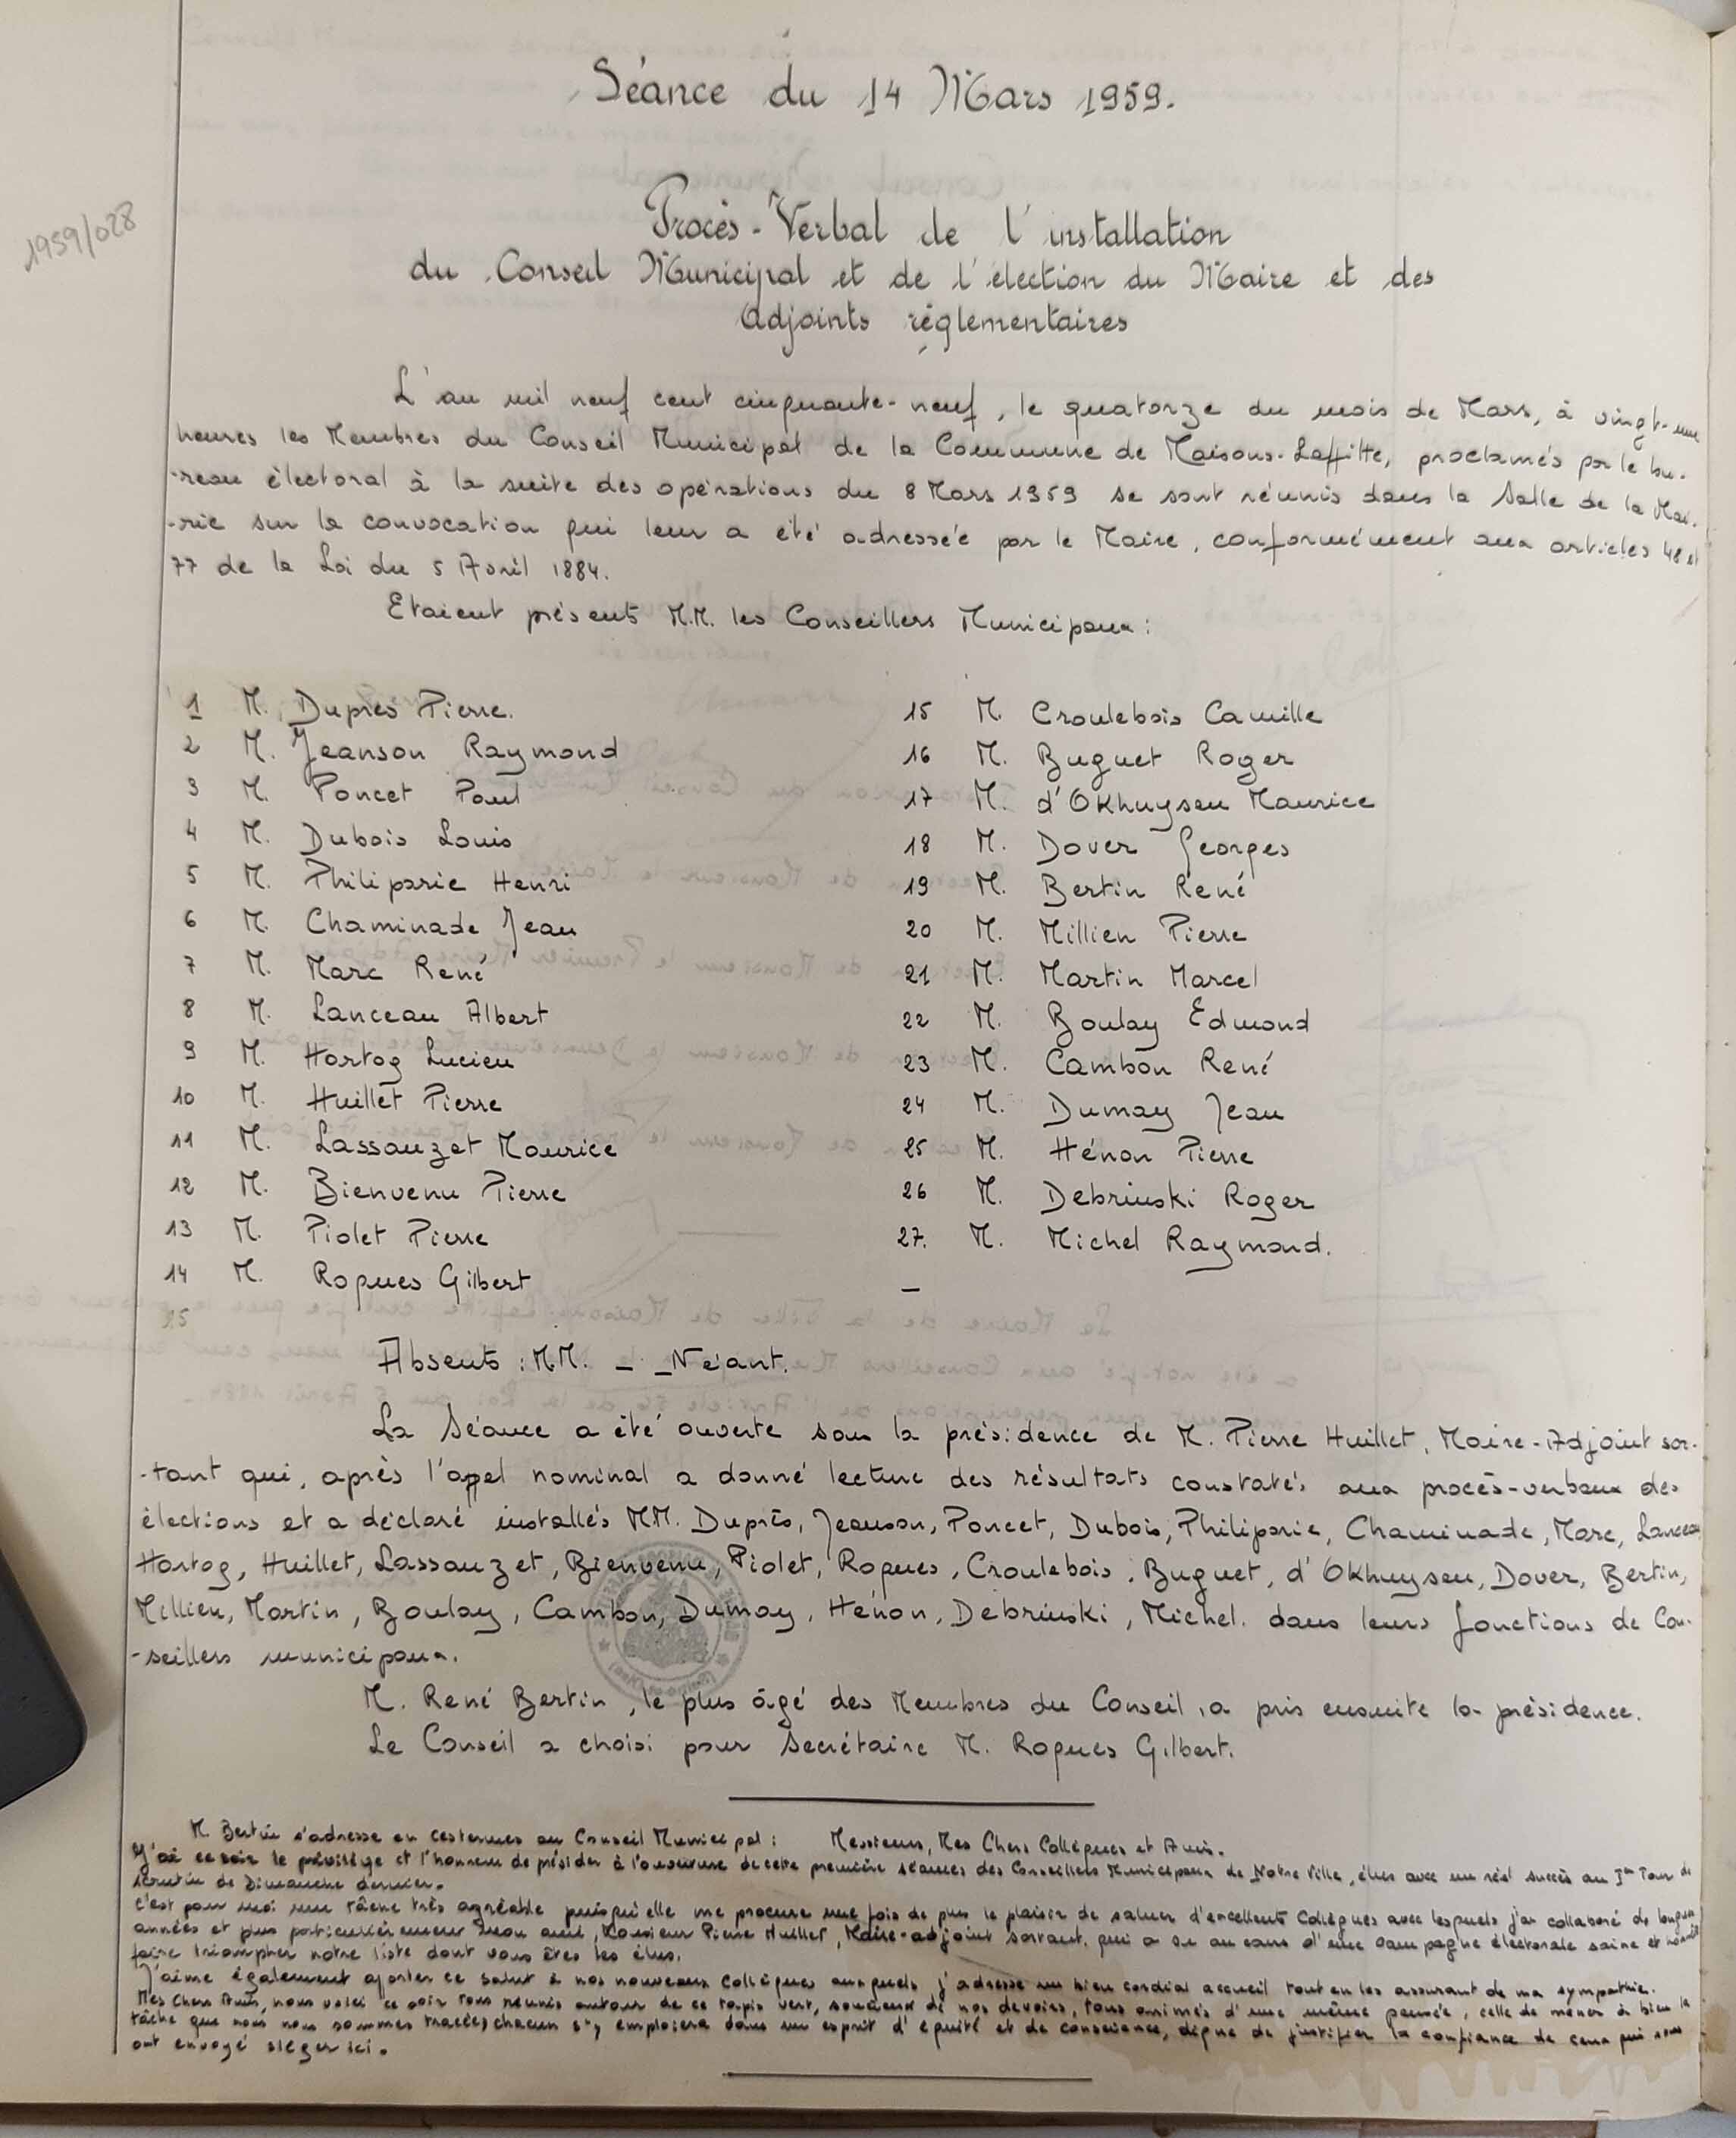 Séance du 14 Mars 1959.
1959/028
Procès-Verbal de l'installation
du Conseil Municipal et de l'élection du Maire et des
Adjoints réglementaires
L'an mil neuf cent cinquante-neuf, le quatorze du mois de Mars, à vingt-une
heures les Membres du Conseil Municipal de la Commune de Maisons-Laffitte, proclamés par le bu-
-reau électoral à la suite des opérations du 8 Mars 1959 se sont réunis dans la Salle de la Mai-
-rie sur la convocation qui leur a été adressée par le Maire, conformément aux articles 48 et
77 de la Loi du 5 Avril 1884.
Etaient présents M.M. les Conseillers Municipaux :
1 M. Duprès Pierre.
2 M. Jeanson Raymond
3 M. Poncet Paul
4 M. Dubois Louis
5 M. Philiparie Henri
6 M. Chaminade Jean
7 M. Marc René
8 M. Lanceau Albert
9 M. Hartog Lucien
10 M. Huillet Pierre
11 M. Lassauzet Maurice
12 M. Bienvenu Pierre
13 M. Piolet Pierre
14 M. Roques Gilbert
15
15 M. Croulebois Camille
16 M. Buguet Roger
17 M. d'Okhuysen Maurice
18 M. Dover Georges
19 M. Bertin René
20 M. Millien Pierre
21 M. Martin Marcel
22 M. Boulay Edmond
23 M. Cambon René
24 M. Dumay Jean
25 M. Hénon Pierre
26 M. Debrinski Roger
27. M. Michel Raymond.
Absents : MM. _ _ Néant.
La Séance a été ouverte sous la présidence de M. Pierre Huillet, Maire-Adjoint sor-
-tant qui, après l'appel nominal a donné lecture des résultats constatés aux procès-verbaux des
élections et a déclaré installés MM. Duprès, Jeanson, Poncet, Dubois, Philiparie, Chaminade, Marc, Lanceau,
Hartog, Huillet, Lassauzet, Bienvenu, Piolet, Roques, Croulebois, Buguet, d'Okhuysen, Dover, Bertin,
Millien, Martin, Boulay, Cambon, Dumay, Hénon, Debrinski, Michel. dans leurs fonctions de Con-
-seillers municipaux.
M. René Bertin, le plus âgé des Membres du Conseil, a pris ensuite la présidence.
Le Conseil a choisi pour Secrétaire M. Roques Gilbert.
M Bertin s'adresse en ces termes au Conseil Municipal : Messieurs, Mes Chers Collègues et Amis.
J'ai ce soir le privilège et l'honneur de présider à l'ouverture de cette première séance des Conseillers Municipaux de Notre Ville, élus avec un réel succès au 1er Tour de
scrutin de Dimanche dernier.
C'est pour moi une tâche très agréable puisqu'elle me procure une fois de plus le plaisir de saluer d'excellents Collègues avec lesquels j'ai collaboré de longues
années et plus particulièrement mon ami, Monsieur Pierre Huillet, Maire-adjoint sortant, qui a su au cours d'une campagne électorale saine et
faire triompher notre liste dont vous êtes les élus.
J'aime également ajouter ce salut à nos nouveaux Collègues auxquels j'adresse un bien cordial accueil tout en les assurant de ma sympathie.
Mes Chers Amis, nous voici ce soir tous réunis autour de ce tapis vert, soucieux de nos devoirs, tous animés d'une même pensée, celle de mener à bien la
tâche que nous nous sommes tracée, chacun s'y emploiera dans un esprit d'équité et de conscience, digne de justifier la confiance de ceux qui nous
ont envoyé siéger ici.